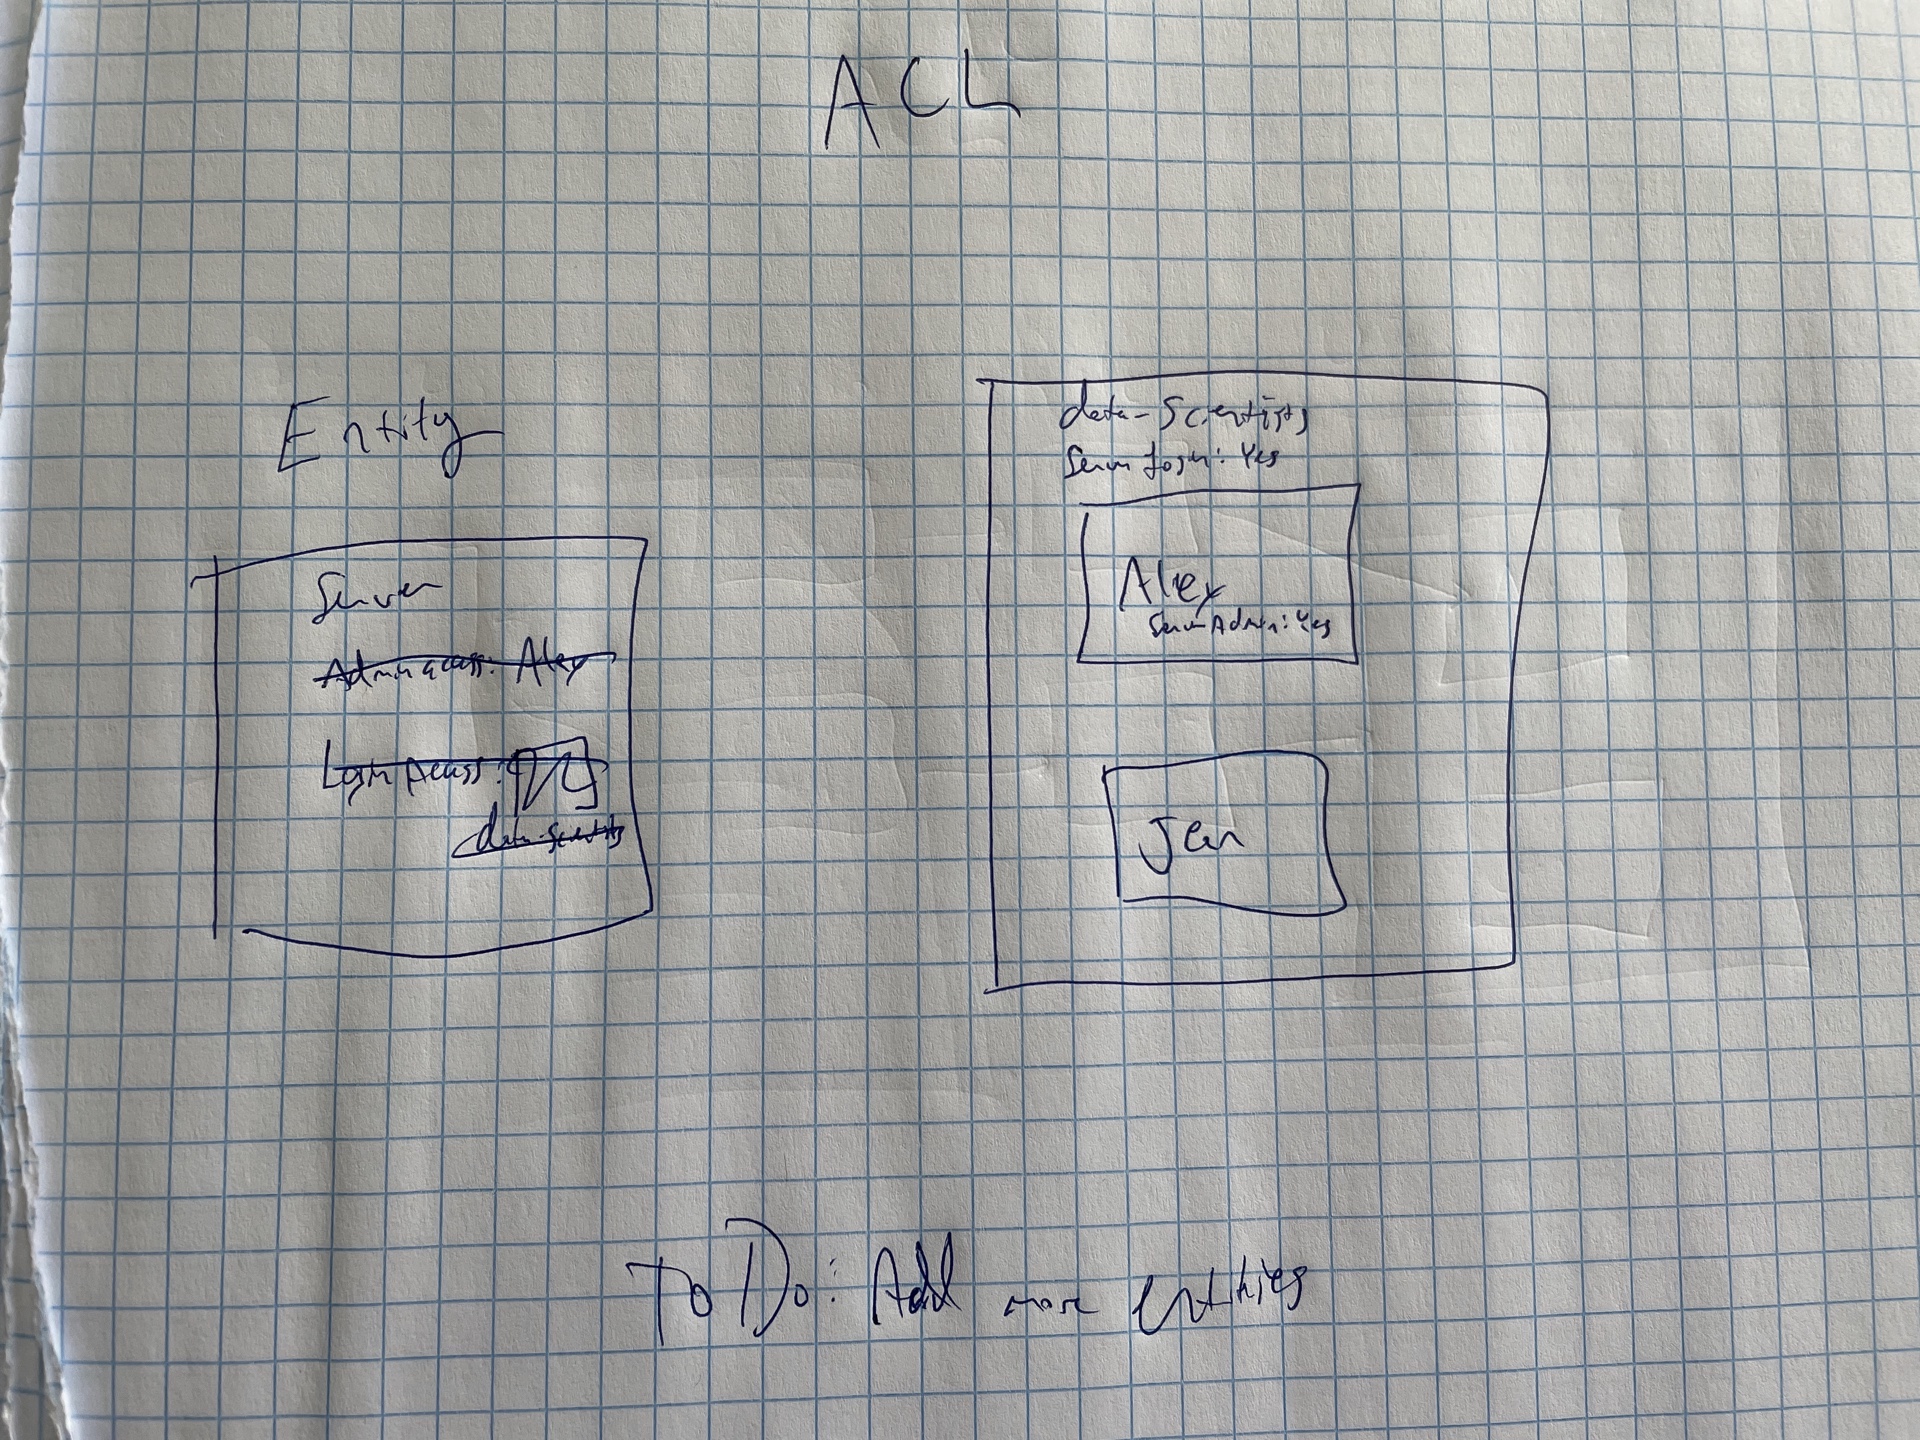 ACL
Entity
Server
Admin access: Alex
Login Access:
data-scientists
data-scientists
Server Login: Yes
Alex
Server Admin: Yes
Jen
To Do: Add more entities